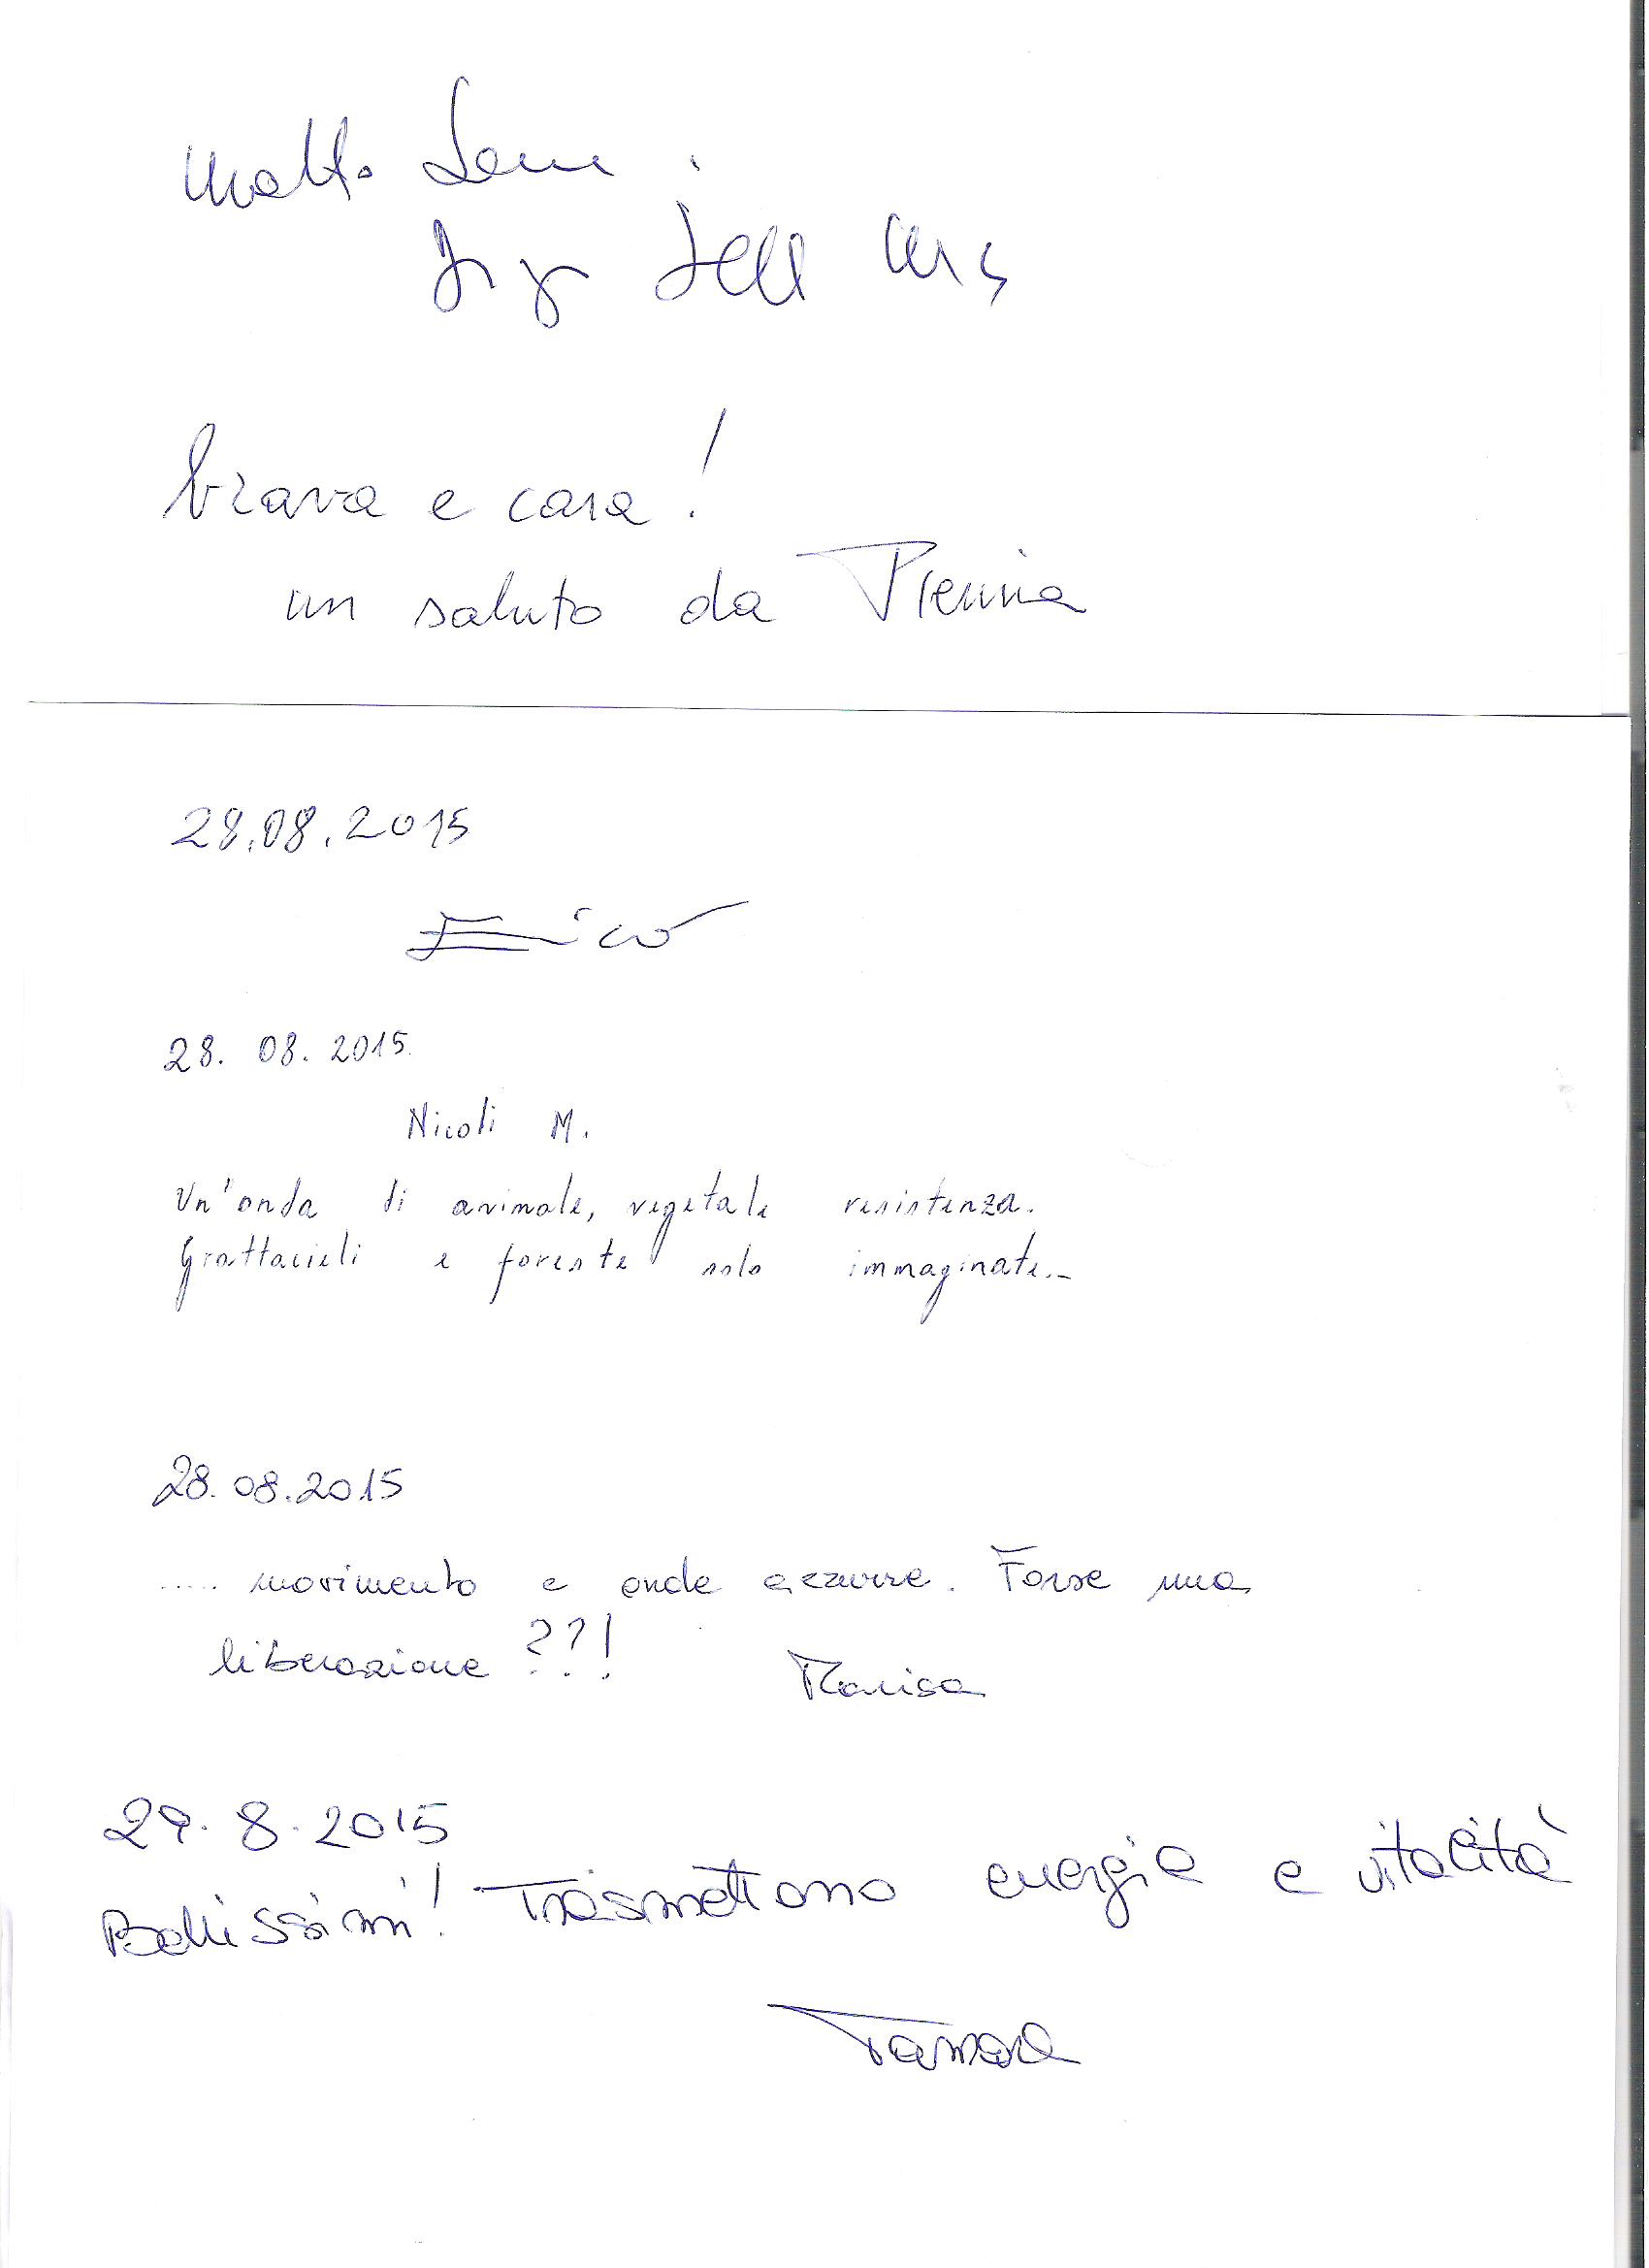 Molto
brava e cara!
un saluto da Pierina
28.08.2015
Enrico
28. 08. 2015.
Nicoli M.
Un'onda di animale, vegetale resistenza.
Grattacieli e foreste solo immaginate.-
28.08.2015
..... movimento e onde azzurre. Forse una
liberazione ??!
Marisa
29. 8. 2015
Bellissimi! Trasmettono energia e vitalità
Tamara